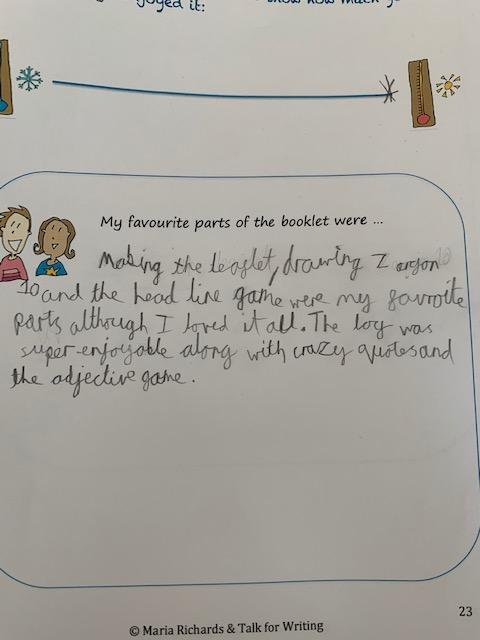 joyed it:
how much
My favourite parts of the booklet were ...
Making the leaflet, drawing Zargon
10 and the head line game were my favroite
parts although I loved it all. The log was
super-enjoyable along with crazy quotes and
the adjective game.
23
© Maria Richards & Talk for Writing